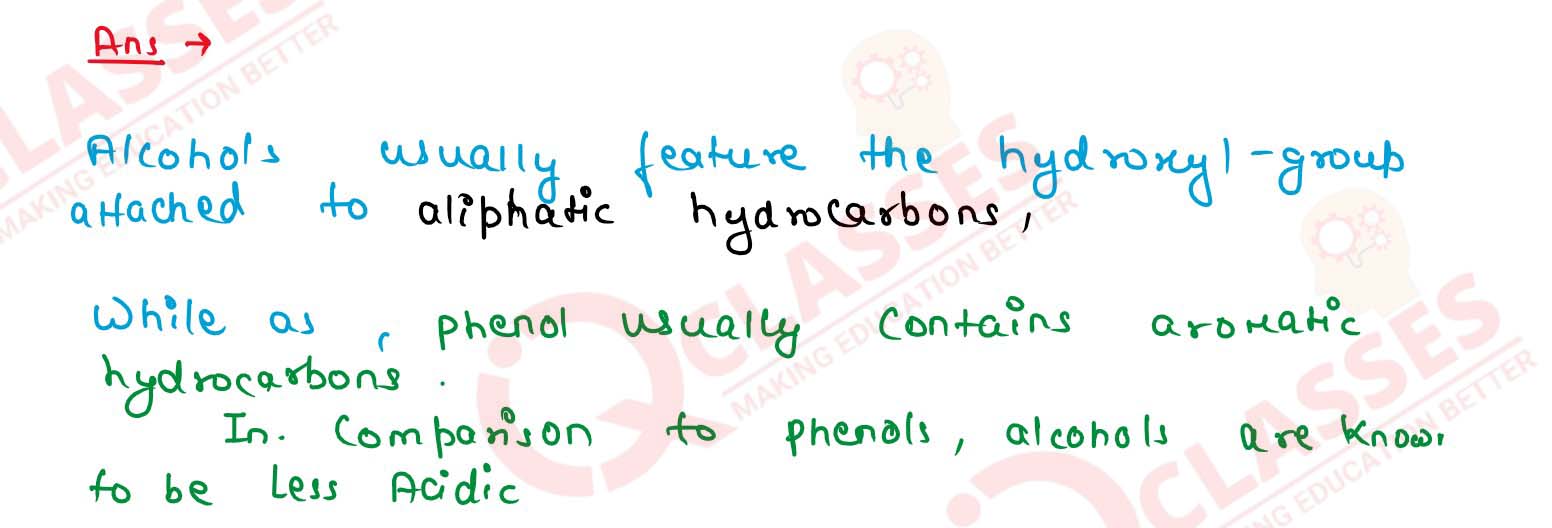 Ans →
Alcohols usually feature the hydroxyl-group
attached to aliphatic hydrocarbons,
While as, phenol usually contains aromatic
hydrocarbons.
In. Comparison to phenols, alcohols are know.
to be Less Acidic
CLASSES
MAKING EDUCATION BETTER
CLASSES
MAKING EDUCATION BETTER
CLASSES
MAKING EDUCATION BETTER